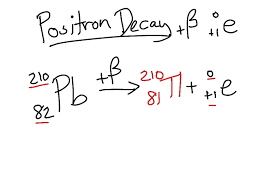 Positron Decay +β ⁰₊₁e
²¹⁰₈₂Pb +β→ ²¹⁰₈₁Tl + ⁰₊₁e